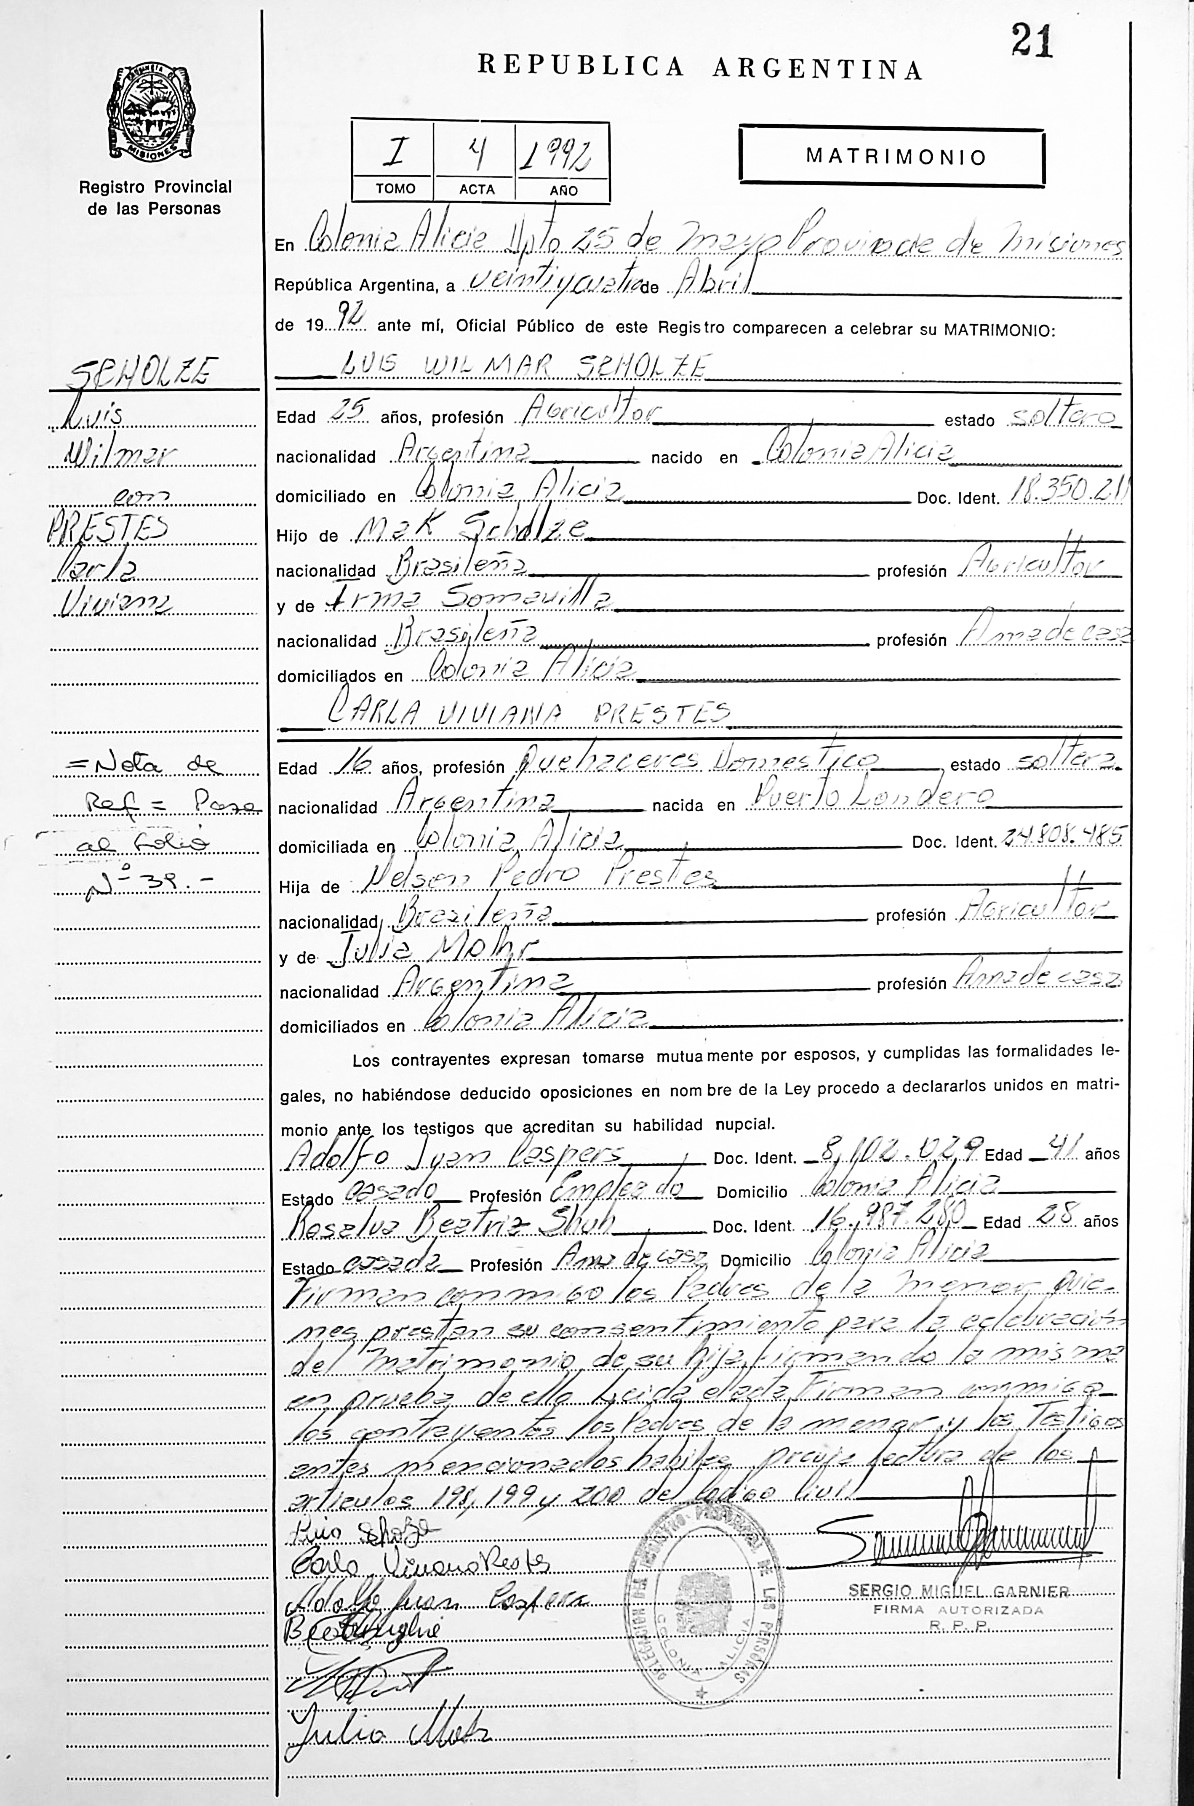 21
REPUBLICA ARGENTINA
PROVINCIA DE MISIONES
Registro Provincial
de las Personas
I 4 1992
TOMO ACTA AÑO
MATRIMONIO
En Colonia Alicia Dpto 25 de Mayo Provincia de de Misiones
República Argentina, a veintiycuatro de Abril
de 1992 ante mí, Oficial Público de este Registro comparecen a celebrar su MATRIMONIO:
LUIS WILMAR SCHOLZE
SCHOLZE
Luis
Wilmar
con
PRESTES
Carla
Viviana
Edad 25 años, profesión Agricultor estado soltero
nacionalidad Argentina nacido en Colonia Alicia
domiciliado en Colonia Alicia Doc. Ident. 18.350.211
Hijo de Mak Scholze
nacionalidad Brasileña profesión Agricultor
y de Irma Somavilla
nacionalidad Brasileña profesión Ama de casa
domiciliados en Colonia Alicia
CARLA VIVIANA PRESTES
=Nota de
Ref= Pasa
al folio
Nº 39.-
Edad 16 años, profesión Quehaceres Domestico estado soltera
nacionalidad Argentina nacida en Puerto Londero
domiciliada en Colonia Alicia Doc. Ident. 24.808.485
Hija de Nelson Pedro Prestes
nacionalidad Brasileña profesión Agricultor
y de Julia Mohr
nacionalidad Argentina profesión Ama de casa
domiciliados en Colonia Alicia
Los contrayentes expresan tomarse mutuamente por esposos, y cumplidas las formalidades le-
gales, no habiéndose deducido oposiciones en nombre de la Ley procedo a declararlos unidos en matri-
monio ante los testigos que acreditan su habilidad nupcial.
Adolfo Juan Caspers Doc. Ident. 8.102.029 Edad 41 años
Estado casado Profesión Empleado Domicilio Colonia Alicia
Rosalva Beatriz Shuh Doc. Ident. 16.987.280 Edad 28 años
Estado casada Profesión Ama de casa Domicilio Colonia Alicia
Firman conmigo los Padres de la menor quie-
nes prestan su consentimiento para la celebración
del Matrimonio de su hija firmando la misma
en prueba de ello Leida el acta Firman conmigo
los contrayentes los Padres de la menor y los Testigos
antes mencionados habiles previa lectura de los
articulos 198, 199 y 200 del Codigo Civil
Luis Sholze
Carla Viviana Prestes
Adolfo Juan Caspers
Julia Mohr
DELEGACION DEL REGISTRO PROVINCIAL DE LAS PERSONAS
COLONIA ALICIA
SERGIO MIGUEL GARNIER
FIRMA AUTORIZADA
R. P. P.